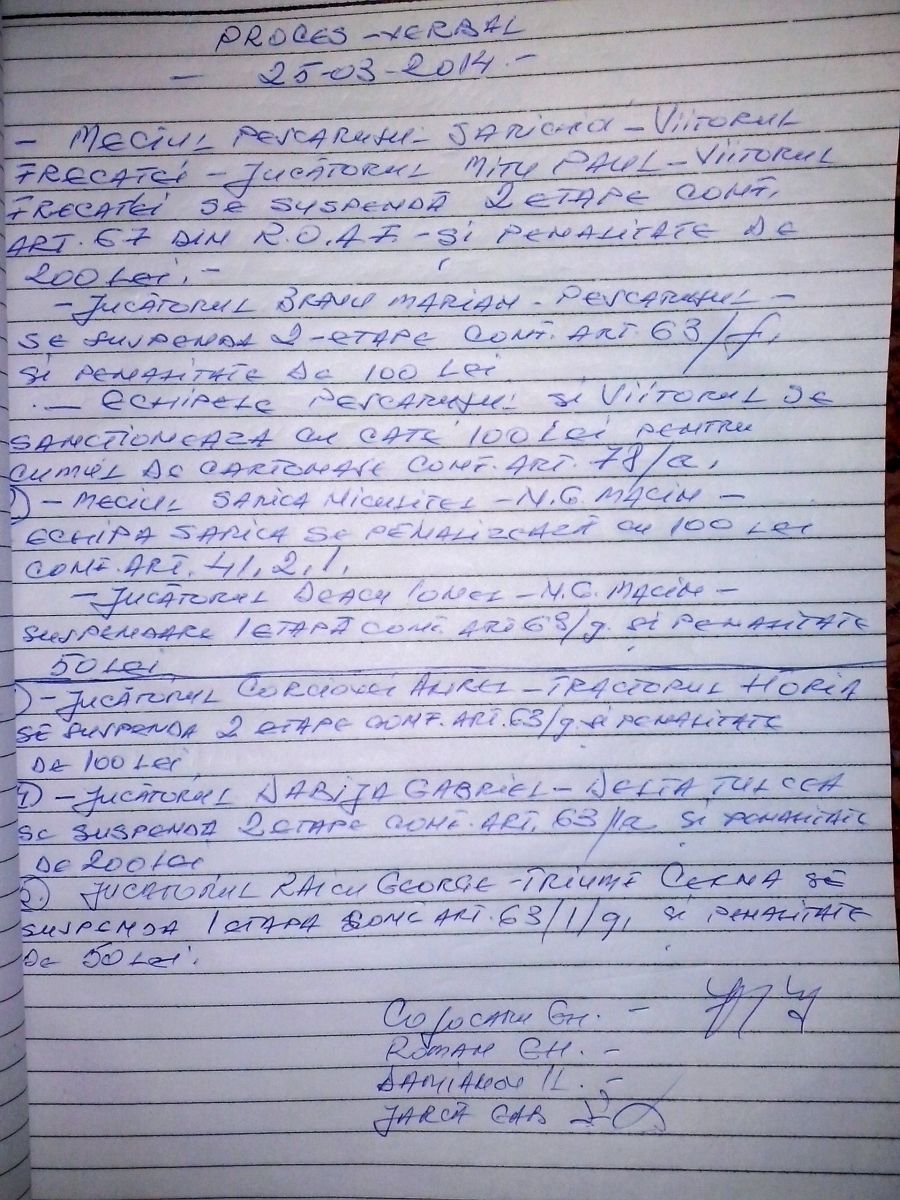 PROCES-VERBAL
- 25-03-2014.-
- MECIUL PESCARUSUL SARICHIOI - VIITORUL
FRECATEI - JUCĂTORUL MITU PAUL - VIITORUL
FRECATEI SE SUSPENDĂ 2 ETAPE CONF.
ART. 67 DIN R.O.A.F. - ȘI PENALITATE DE
200 LEI.-
- JUCĂTORUL BRAVU MARIAN - PESCARUSUL -
SE SUSPENDA 2-ETAPE CONF. ART. 63/f,
ȘI PENALITATE DE 100 LEI
- ECHIPELE PESCARUSUL ȘI VIITORUL SE
SANCTIONEAZA CU CATE 100 LEI PENTRU
CUMUL DE CARTONASE CONF. ART. 78/a.
) - MECIUL SARICA NICULITEL - N.G. MACIN -
ECHIPA SARICA SE PENALIZEAZĂ CU 100 LEI
CONF. ART. 41, 2, 1,
- JUCĂTORUL DEACU IONEL - N.G. MACIN -
SUSPENDARE 1 ETAPĂ CONF. ART 63/g. ȘI PENALITATE
50 LEI
) - JUCĂTORUL AUREL - TRACTORUL HORIA
SE SUSPENDA 2 ETAPE CONF. ART. 63/g ȘI PENALITATE
DE 100 LEI
4) - JUCĂTORUL DABIJA GABRIEL - DELTA TULCEA
SE SUSPENDĂ 2 ETAPE CONF. ART. 63/a ȘI PENALITATE
DE 200 LEI
5.) JUCATORUL RAICU GEORGE - TRIUMF CERNA SE
SUSPENDA 1 ETAPA CONF ART. 63/1/g, ȘI PENALITATE
DE 50 LEI.
COJOCARU GH. -
ROMAN GH. -
DAMIANOV IL. -
JARCĂ GAB